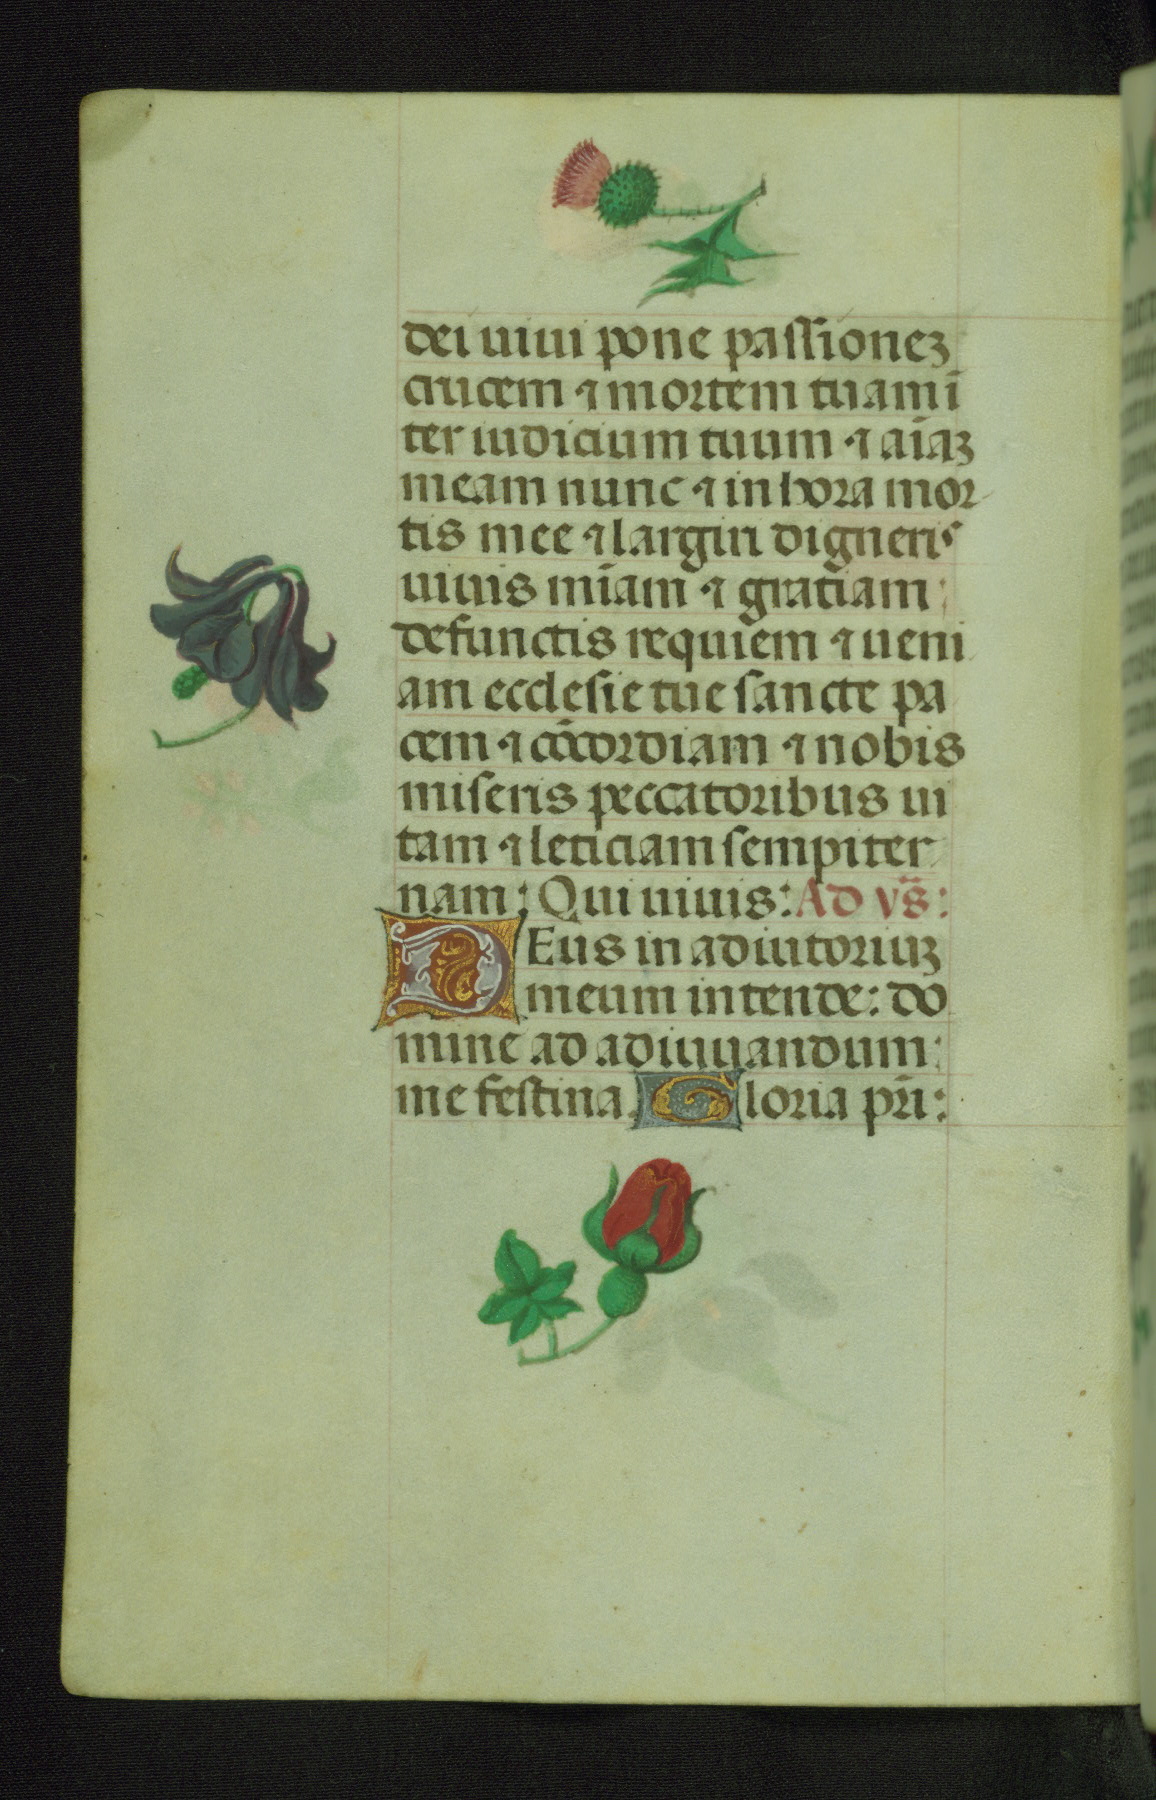 dei uiui pone passionez
crucem ⁊ mortem tuam ī
ter iudicium tuum ⁊ aīaz
meam nunc ⁊ in hora mor
tis mee ⁊ largiri digneris
uiuis mīam ⁊ gratiam
defunctis requiem ⁊ ueni
am ecclesie tue sancte pa
cem ⁊ cōcordiam ⁊ nobis
miseris peccatoribus ui
tam ⁊ leticiam sempiter
nam: Qui uiuis: Ad vs̄:
DEus in adiutoriuz
meum intende: do
mine ad adiuuandum:
me festina. Gloria pr̄i: